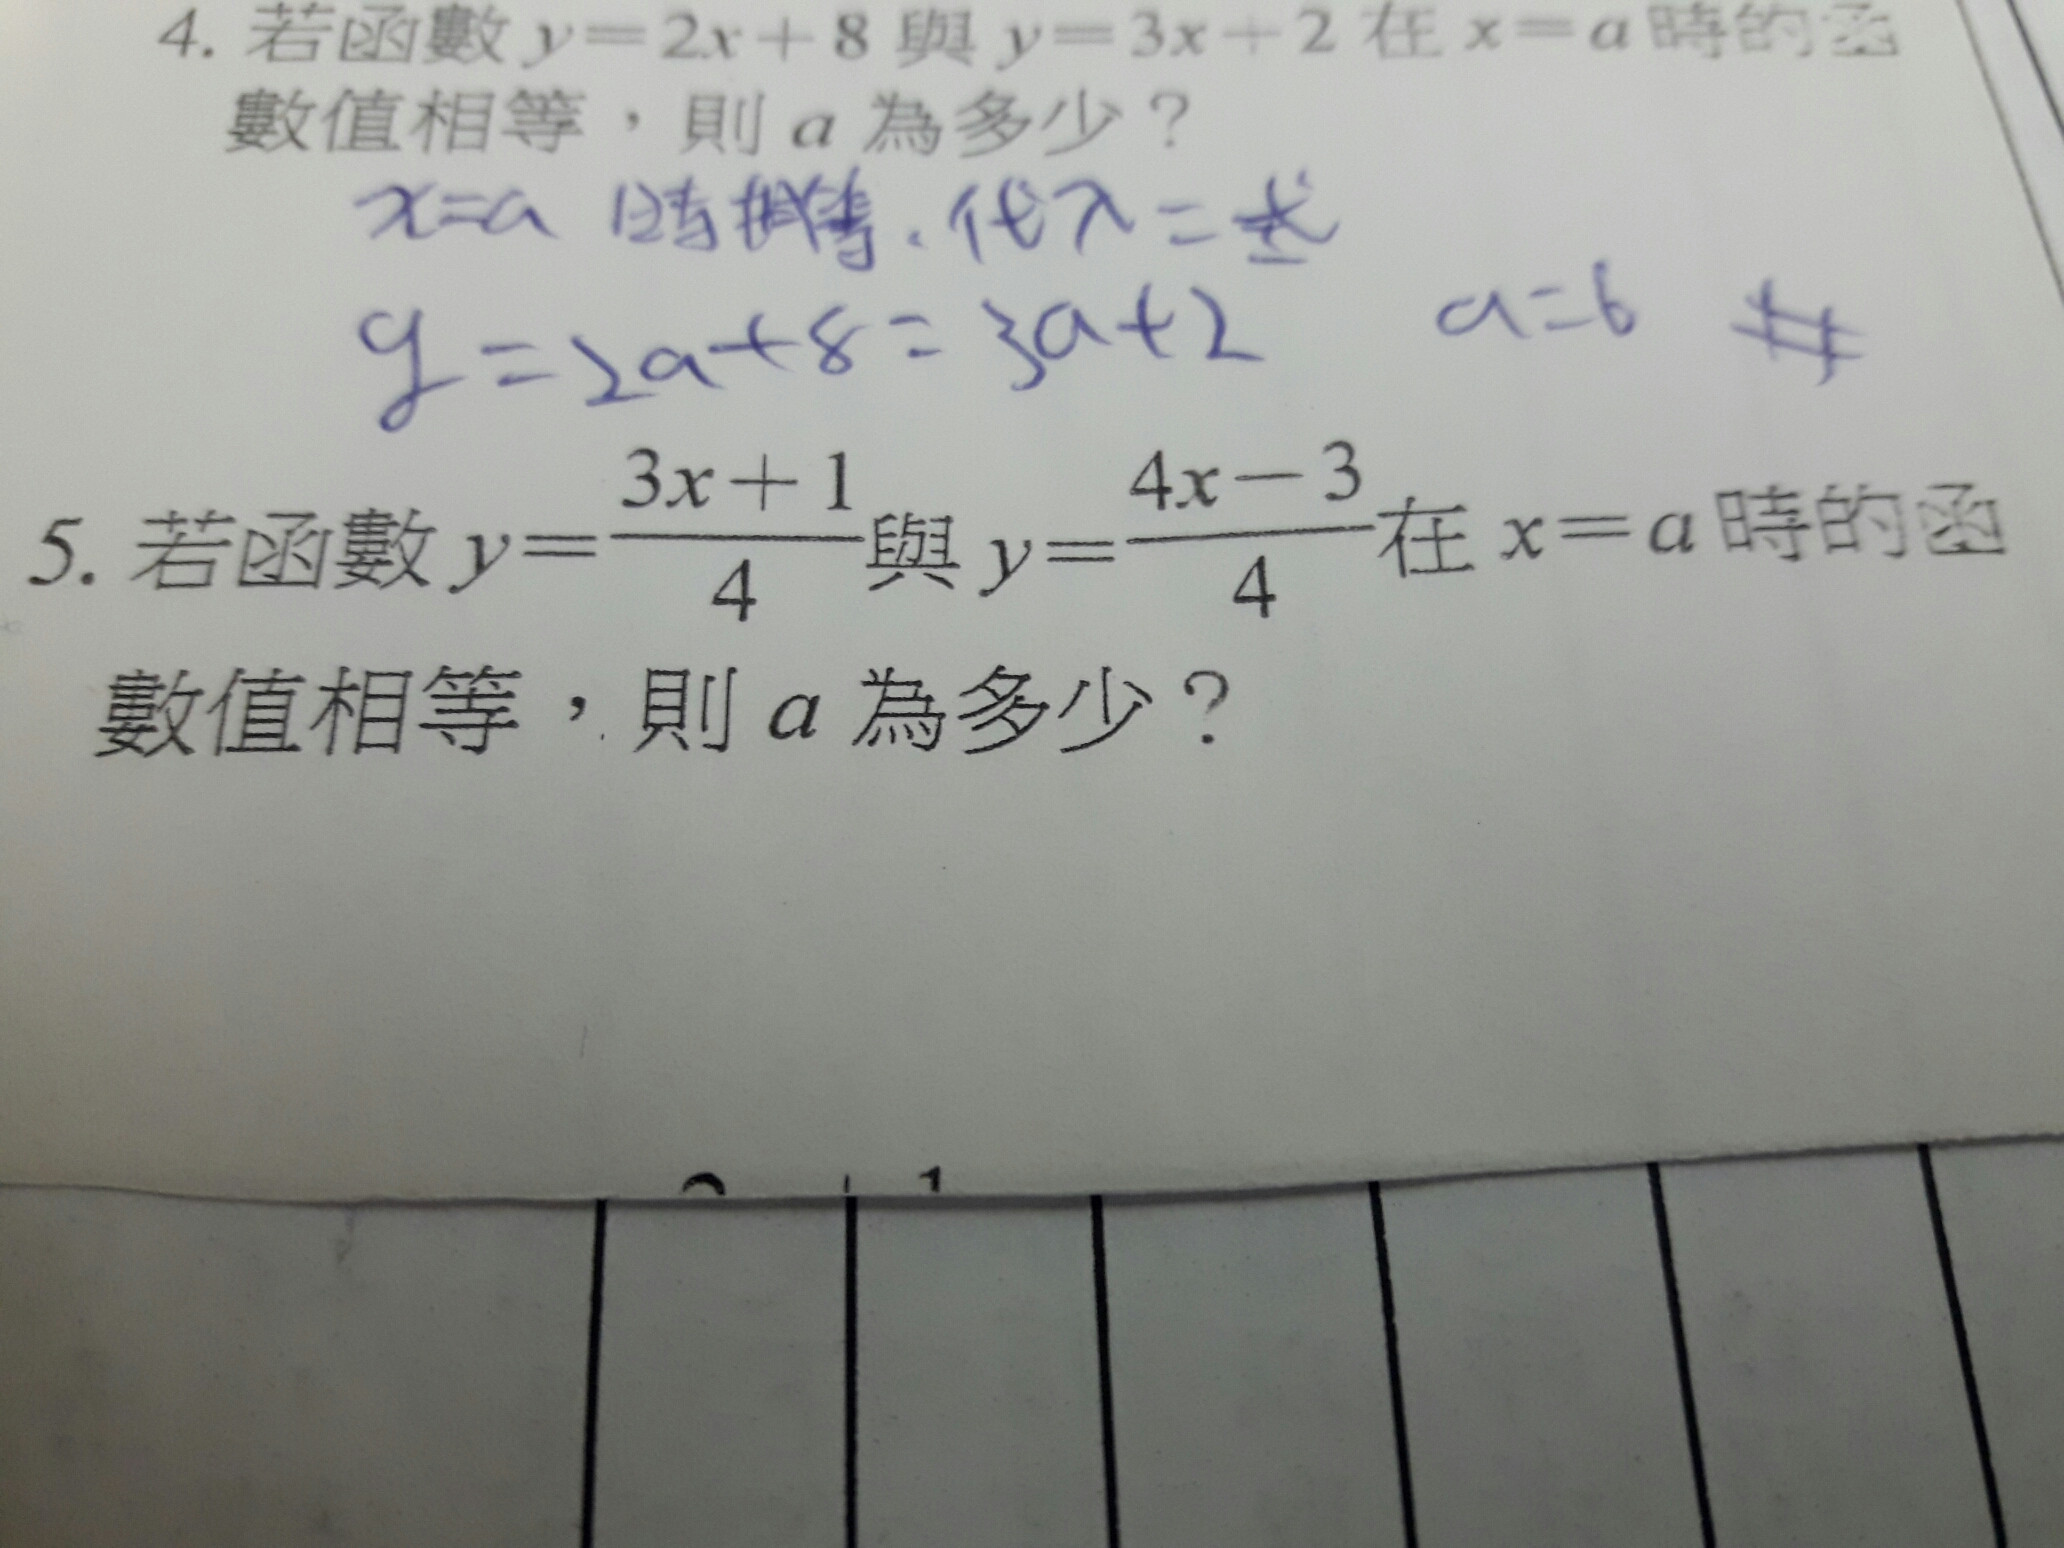 4. 若函數 y=2x+8 與 y=3x+2 在 x=a 時的函
數值相等,則 a 為多少?
x=a 時相等.代入=式
y=2a+8=3a+2 a=6 #
5. 若函數 y=\frac{3x+1}{4} 與 y=\frac{4x-3}{4} 在 x=a 時的函
數值相等,則 a 為多少?